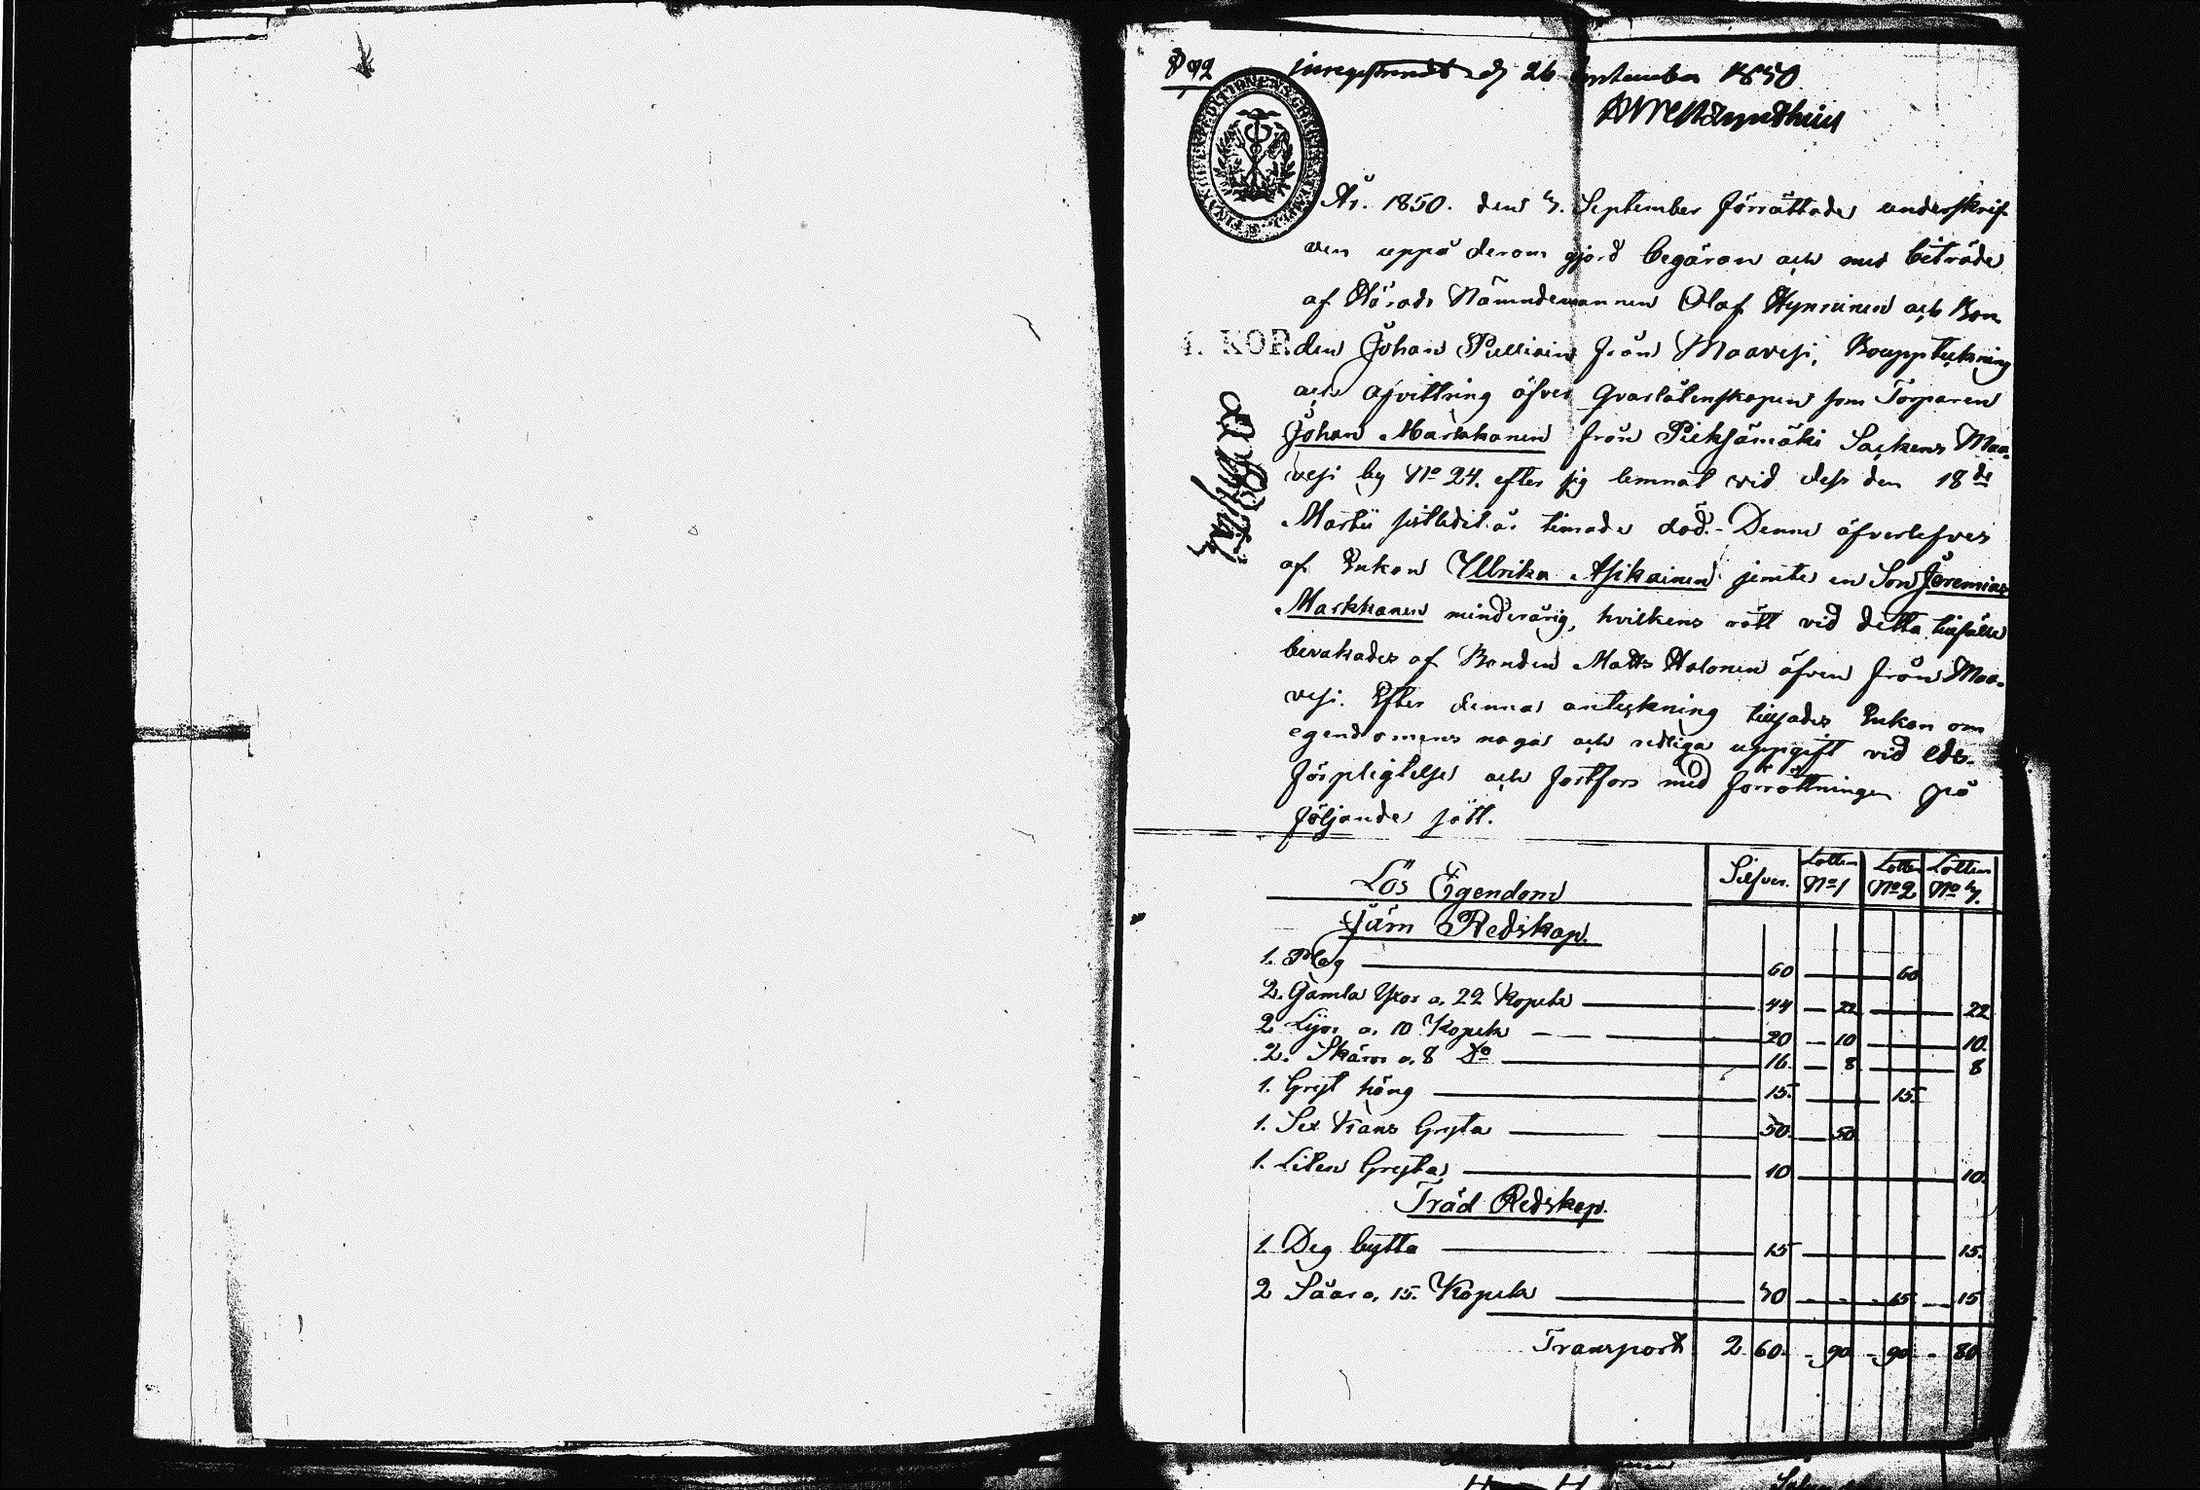 26 September 1850
År. 1850. den 3. September förrättades underskrif
ven uppå derom gjord begäran och med biträde
af Härads Nämndemannen Olaf Hynninen och Bon
den Johan Pulliain från Maavesi, Bouppteckning
och afvittring öfver qvarlåtenskapen som Torparen
Johan Markkanen från Pieksämäki Sockens Maa-
vesi by No 24. efter sig lemnat vid dess den 18de
Martii sistledit år timade död. - Denne öfverlefves
af Enkan Ullrika Asikainen jemte en Son Jeremias
Markkanen minderårig, hvilkens rätt vid detta tillfälle
bevakades af Bonden Matts Halonen äfven från Maa-
vesi. Efter denna anteckning tillsades Enkan om
egendomens noga och redliga uppgift vid eds-
förpligtelse och fortfors med förrättningen på
följande sätt.
Lös Egendom Silfver. Lotten No 1 Lotten No 2 Lotten No 3.
Järn Redskap.
1. Plog 60 60
2. Gamla Yxor a. 22 Kopek 44 22 22
2 Lijor a. 10 Kopek 20 10 10.
2. Skäror a. 8 Do 16 8 8
1. Gryt häng 15. 15.
1. Sex Kans Gryta 50. 50
1. Liten Gryta 10 10.
Träd Redskap.
1. Deg bytta 15 15.
2 Såar a. 15. Kopek 30 - - - 15 15
Transport 2 60. - 90 - 90 - 80
1. KOP